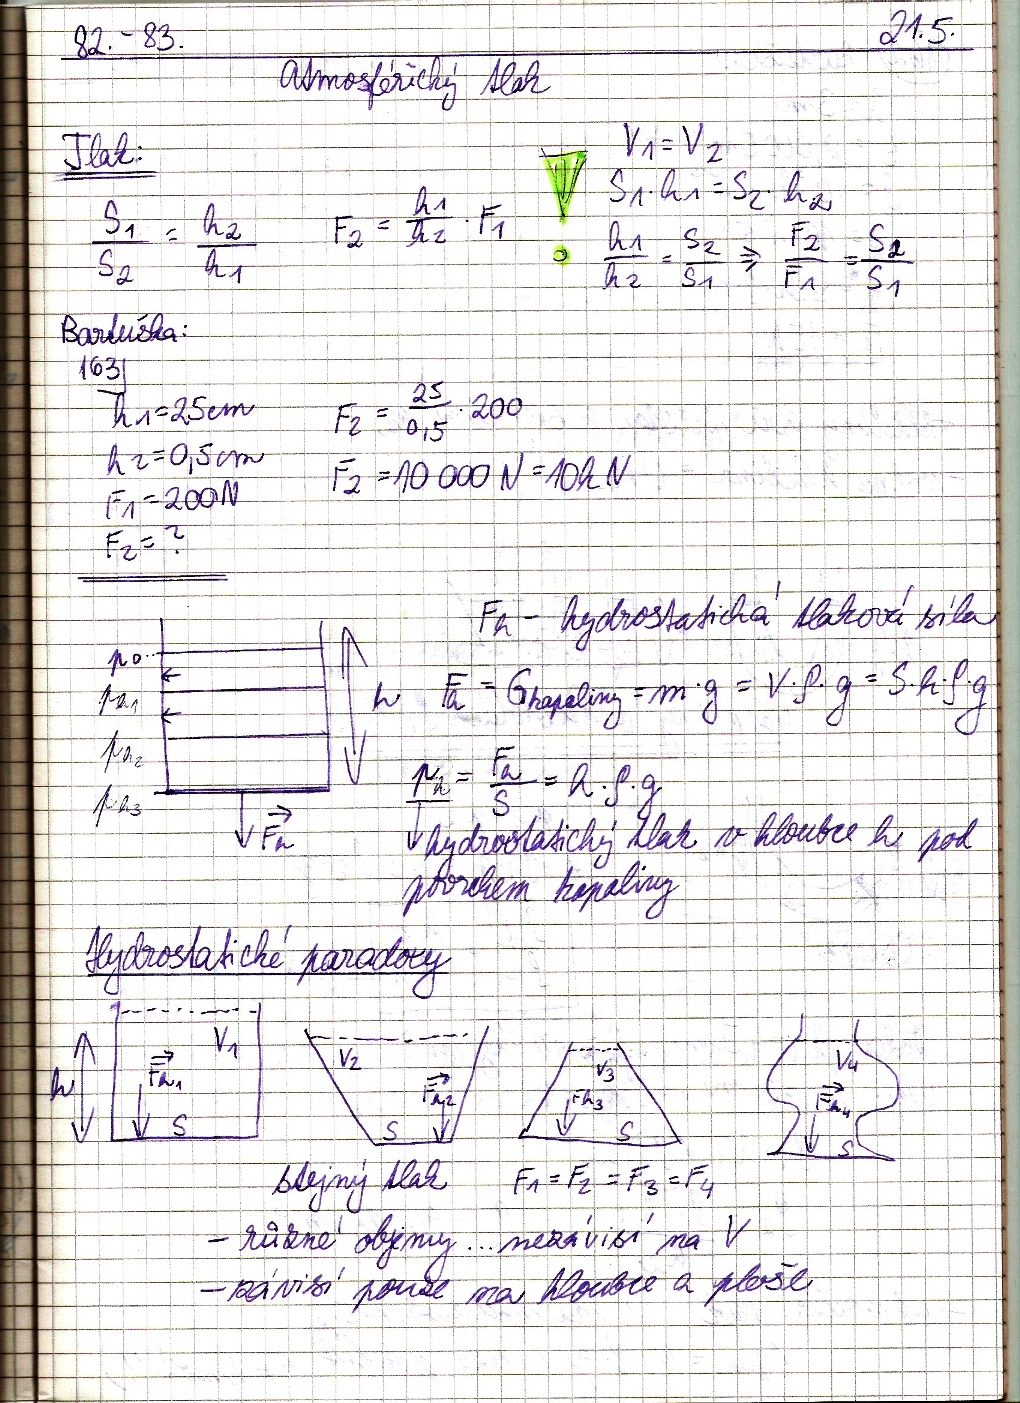 82.-83.
21.5.
Atmosférický tlak
Tlak:
S1/S2 = h2/h1
F2 = h1/h2 · F1
!
V1 = V2
S1·h1 = S2·h2
h1/h2 = S2/S1 ⇒ F2/F1 = S2/S1
Bartuška:
163)
h1 = 25cm
h2 = 0,5cm
F1 = 200N
F2 = ?
F2 = 25/0,5 · 200
F2 = 10 000 N = 10kN
p0
ph1
ph2
ph3
h
Fh
Fh - hydrostatická tlaková síla
Fh = Gkapaliny = m·g = V·ρ·g = S·h·ρ·g
ph = Fh/S = h·ρ·g
hydrostatický tlak v hloubce h pod
povrchem kapaliny
Hydrostatické paradoxy
h
V1
Fh1
S
V2
Fh2
S
V3
Fh3
S
V4
Fh4
S
stejný tlak
F1 = F2 = F3 = F4
- různé objemy... nezávisí na V
- závisí pouze na hloubce a ploše